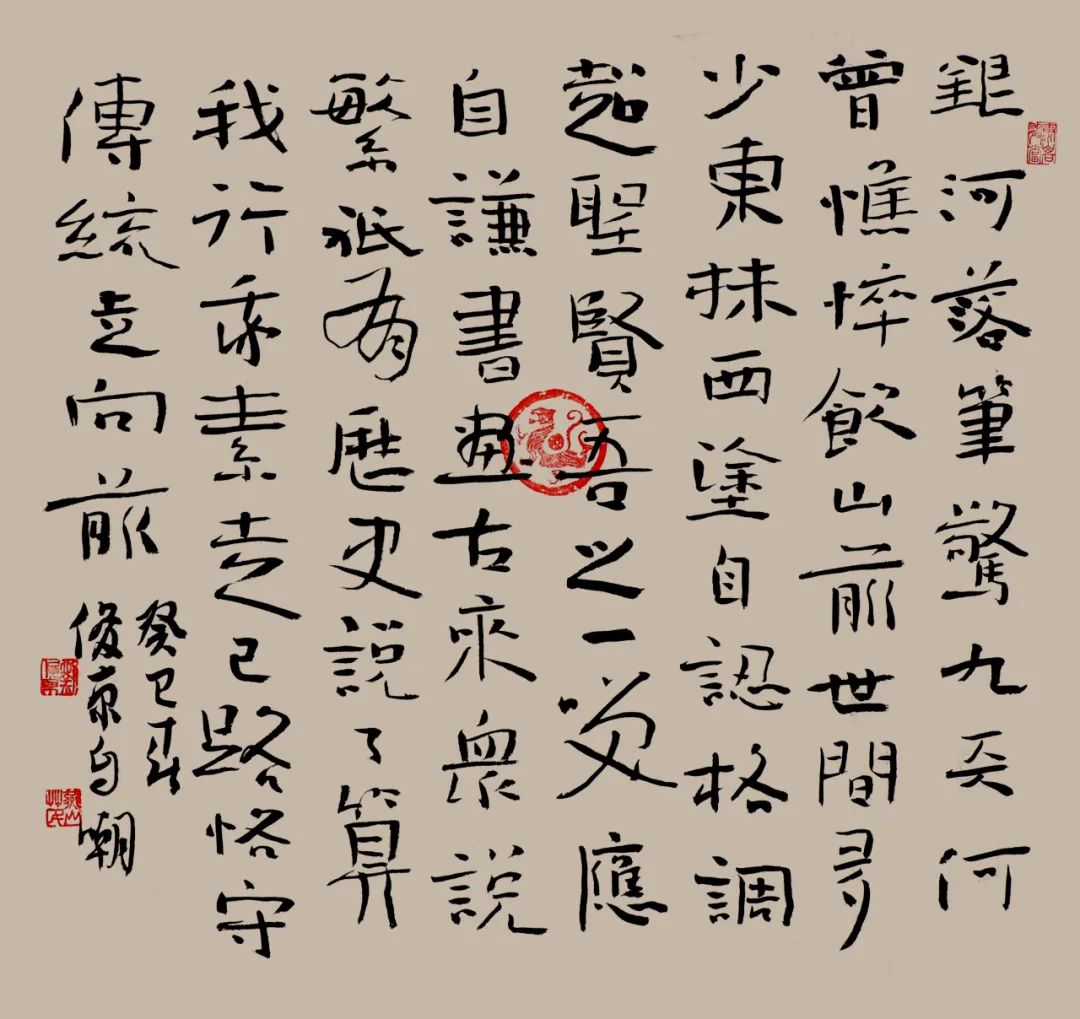 銀河落筆驚九天何
曾憔悴飲山前世間多
少東抹西塗自認格調
超聖賢吾之一笑應
自謙書畫古來衆説
繁祇有歷史説了算
我行我素走己路恪守
傳統走向前
癸巳春
俊京自嘲